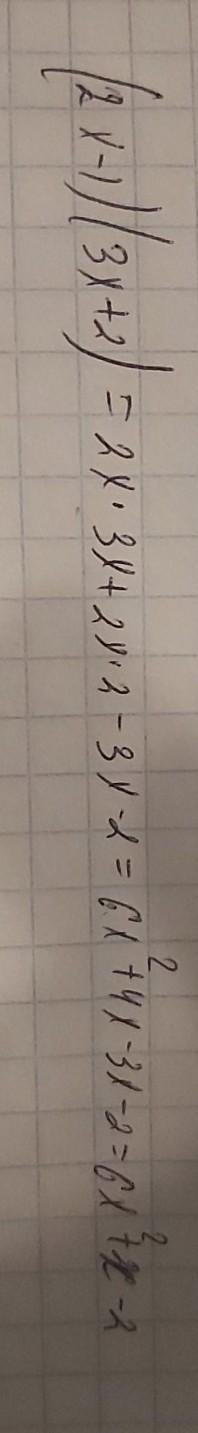 (2x-1)(3x+2) = 2x·3x+2x·2-3x-2 = 6x²+4x-3x-2=6x²+x-2